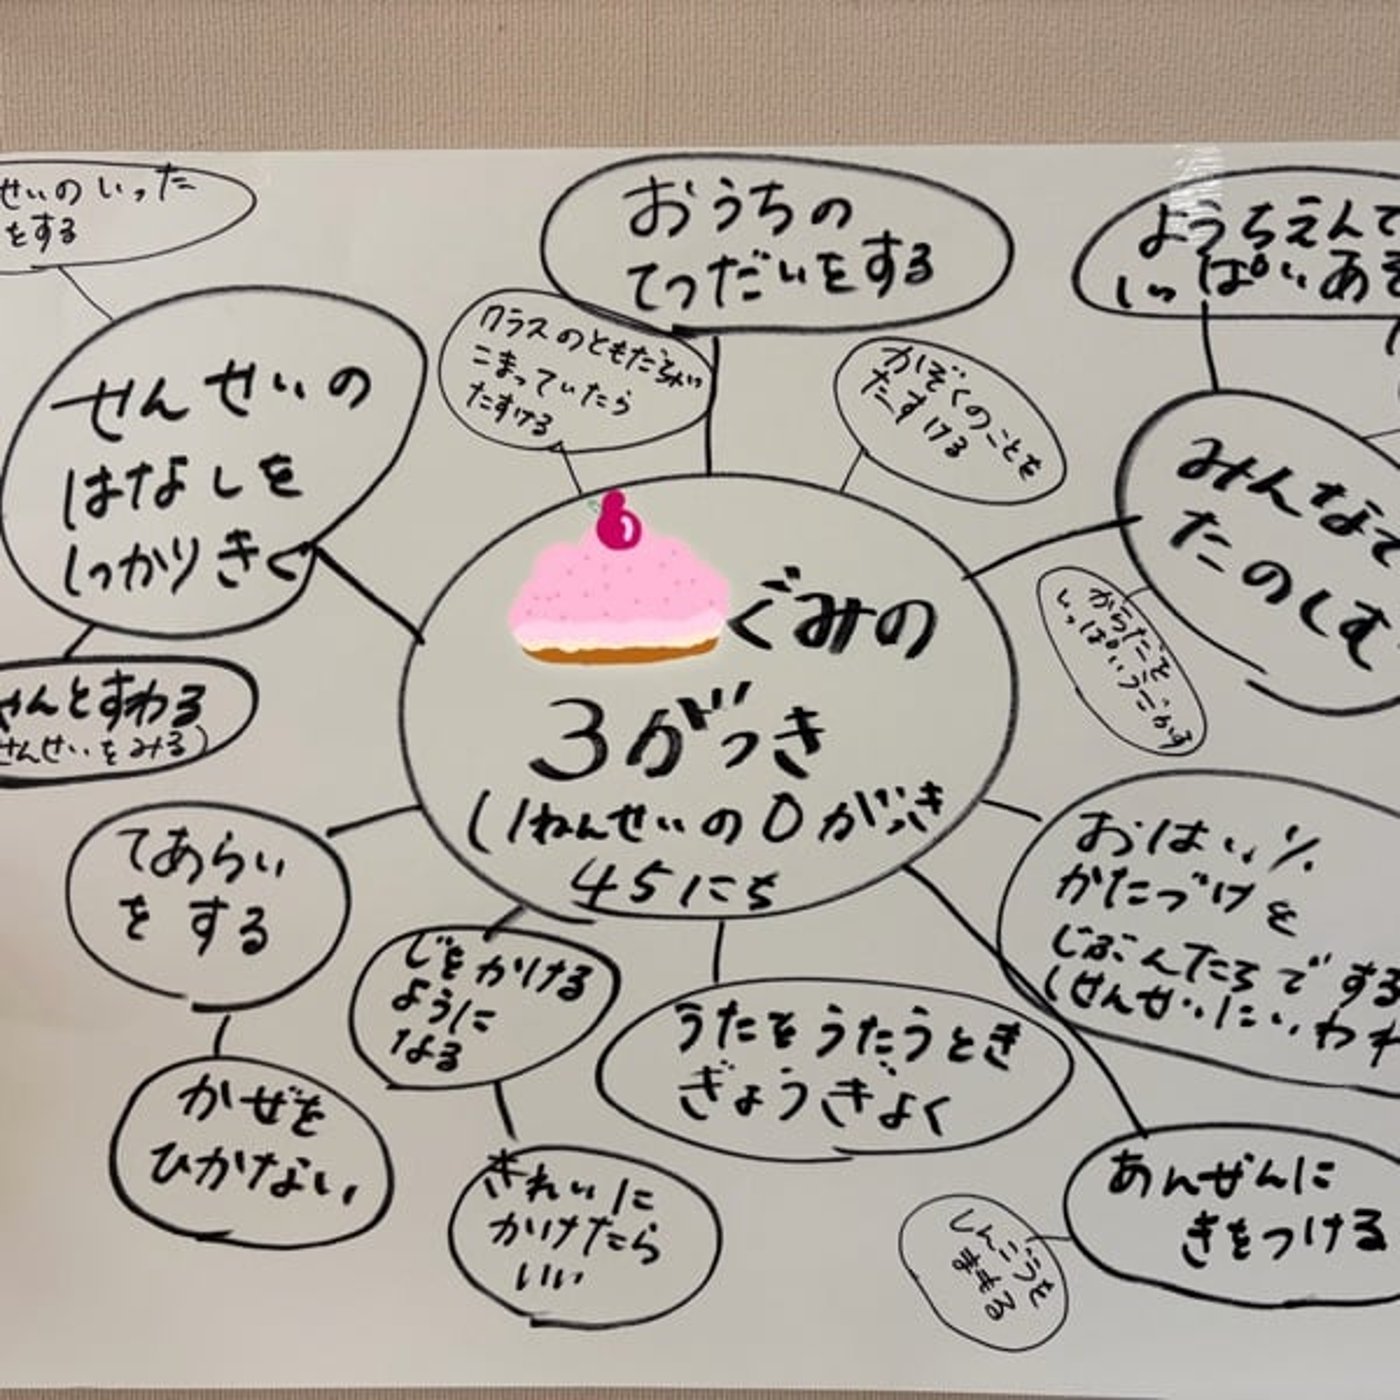 せいのいった
をする
せんせいの
はなしを
しっかりきく
ゃんとすわる
せんせいをみる)
おうちの
てつだいをする
クラスのともだちが
こまっていたら
たすける
かぞくのことを
たすける
ようちえんで
いっぱいあそ
みんなで
たのしむ
からだを
いっぱいうごかす
ぐみの
3がっき
(1ねんせいの0がっき
45にち
てあらい
をする
かぜを
ひかない
じをかける
ように
なる
きれいに
かけたら
いい
うたをうたうとき
ぎょうぎよく
かたづけを
じぶんたちでする
(せんせいにいわれ
あんぜんに
きをつける
しんごうを
まもる